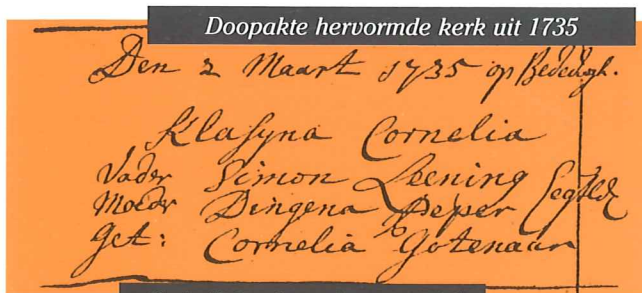 Doopakte hervormde kerk uit 1735
Den 2 Maart 1735 op Bededagh.
Klasyna Cornelia
Vader Simon Leening
Moedr Dingena Peper Egteld
Get: Cornelia Gotenaar